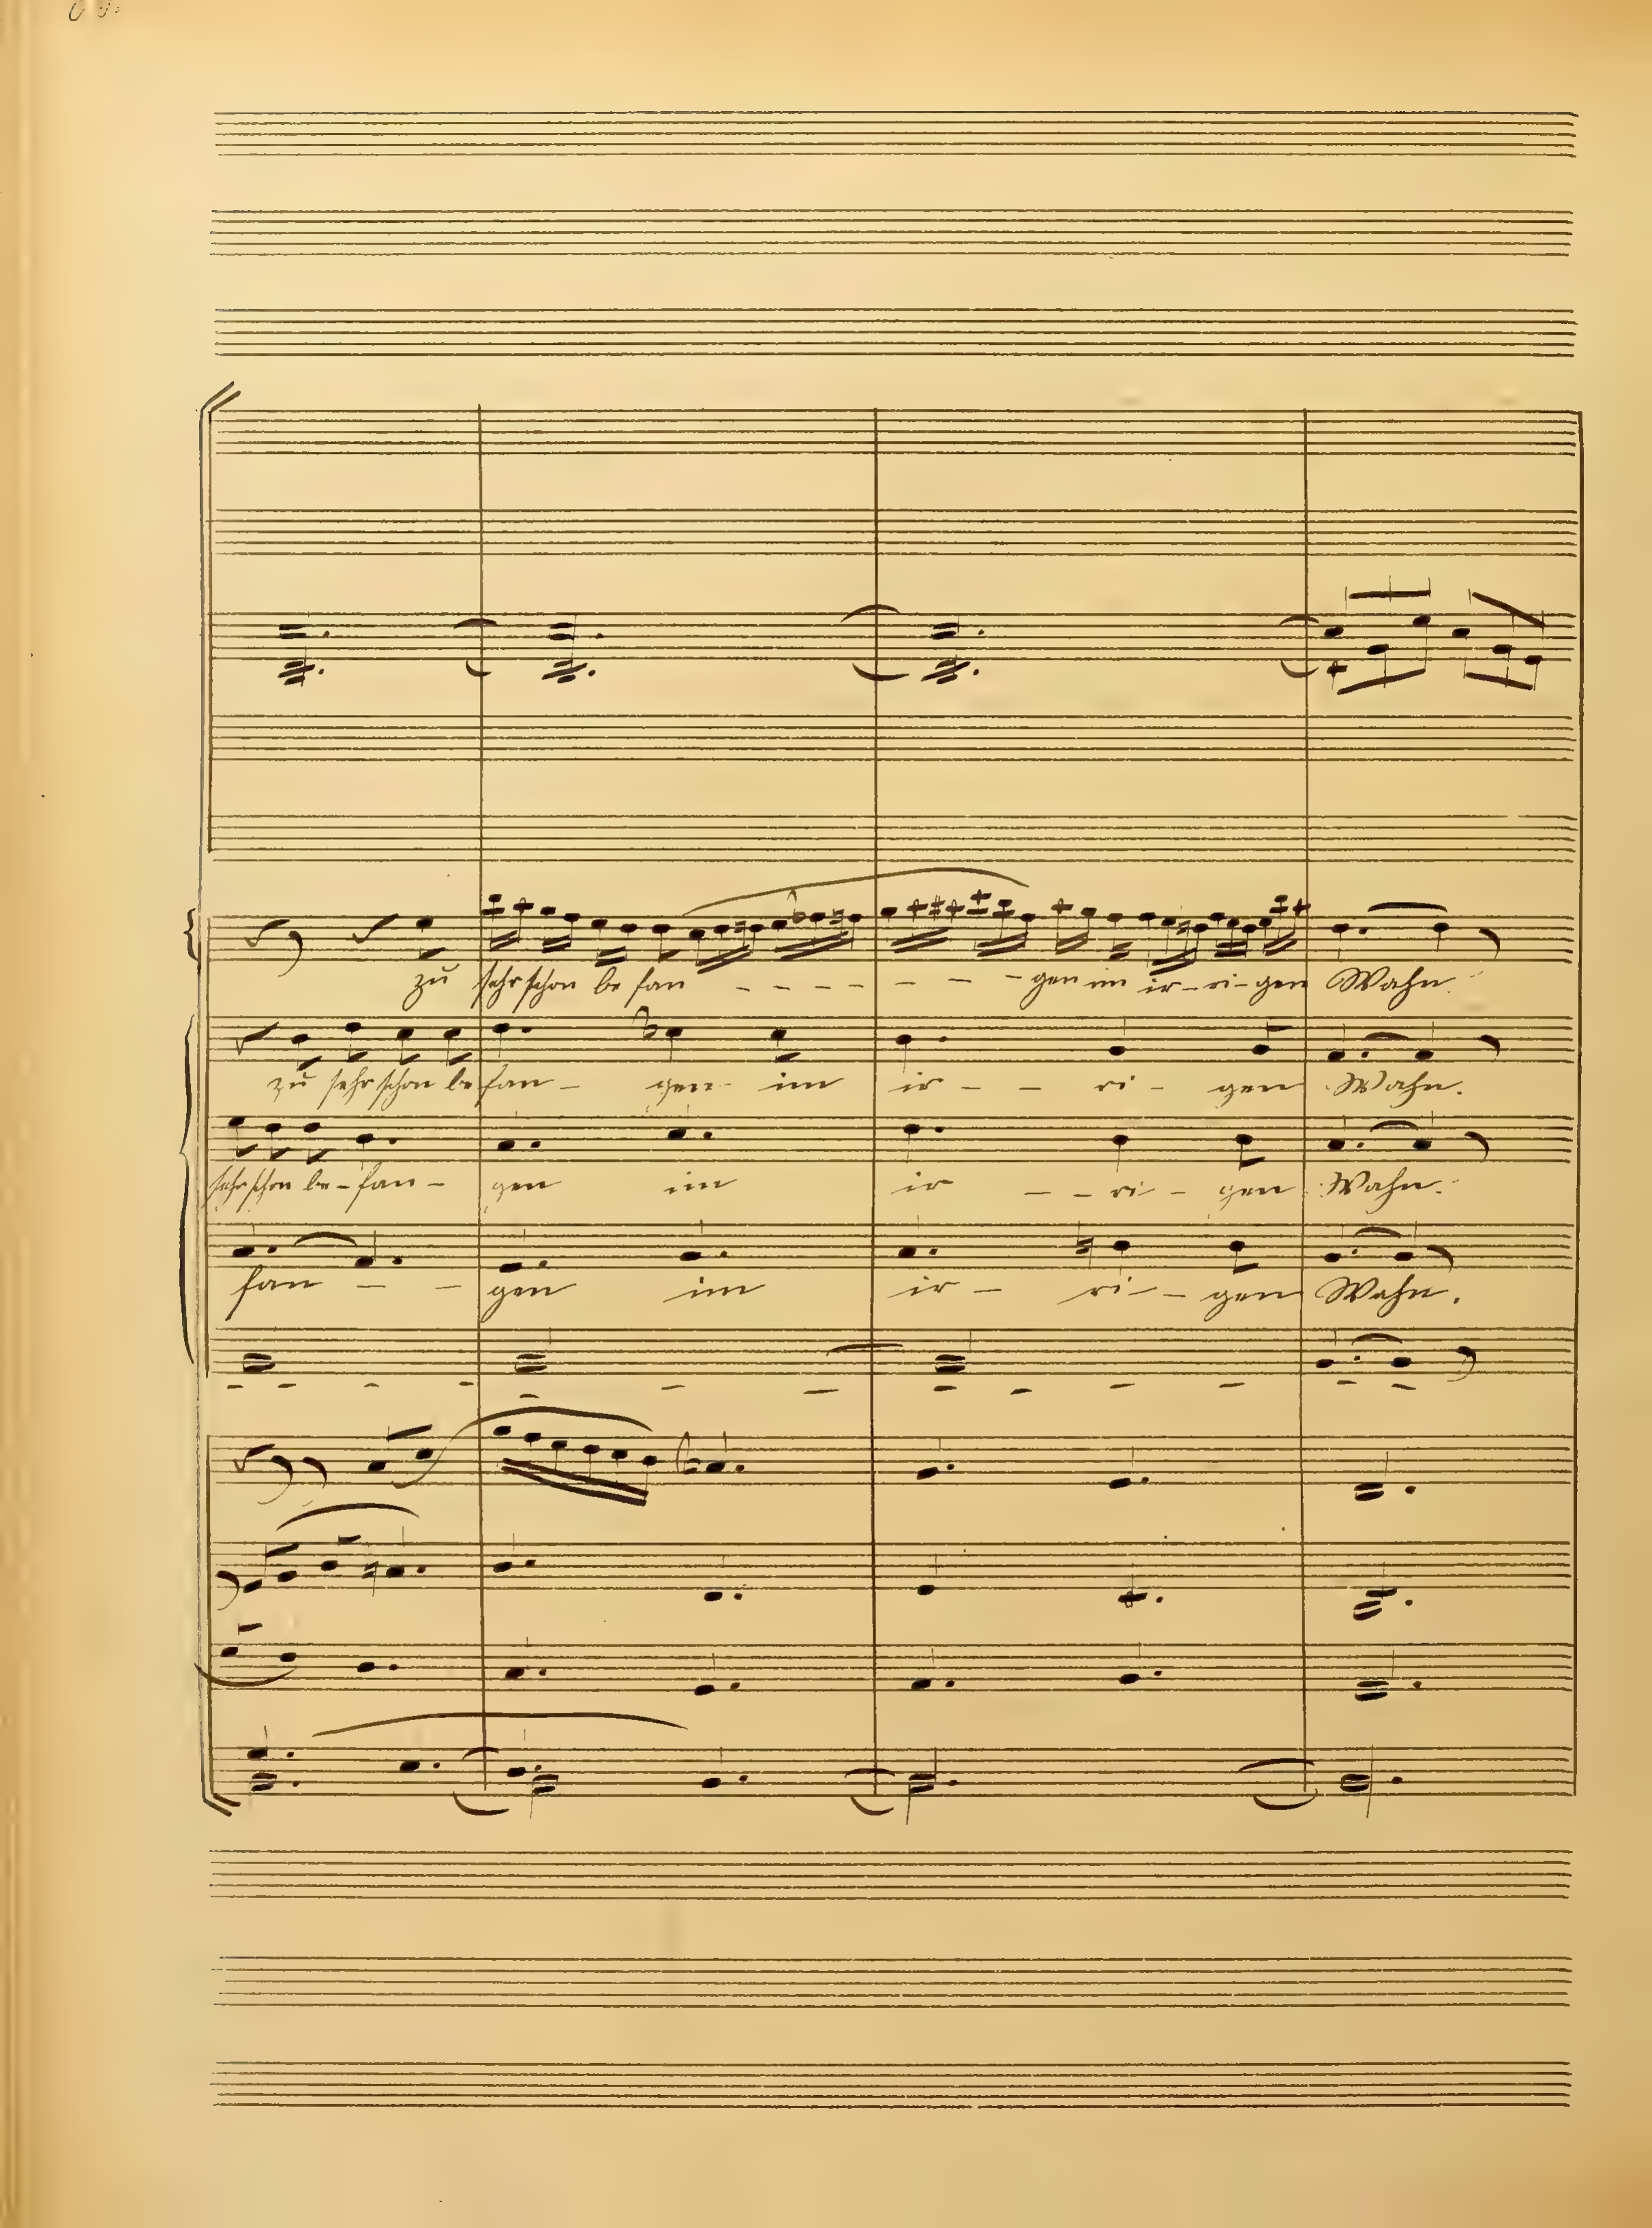 zu sehr schon be fan - - - - - - - - gen im ir - ri - gen Wahn.
zu sehr schon be fan - gen im ir - - ri - gen Wahn.
sehr schon be - fan - gen im ir - - ri - gen Wahn.
fan - - - gen im ir - ri - - gen Wahn.